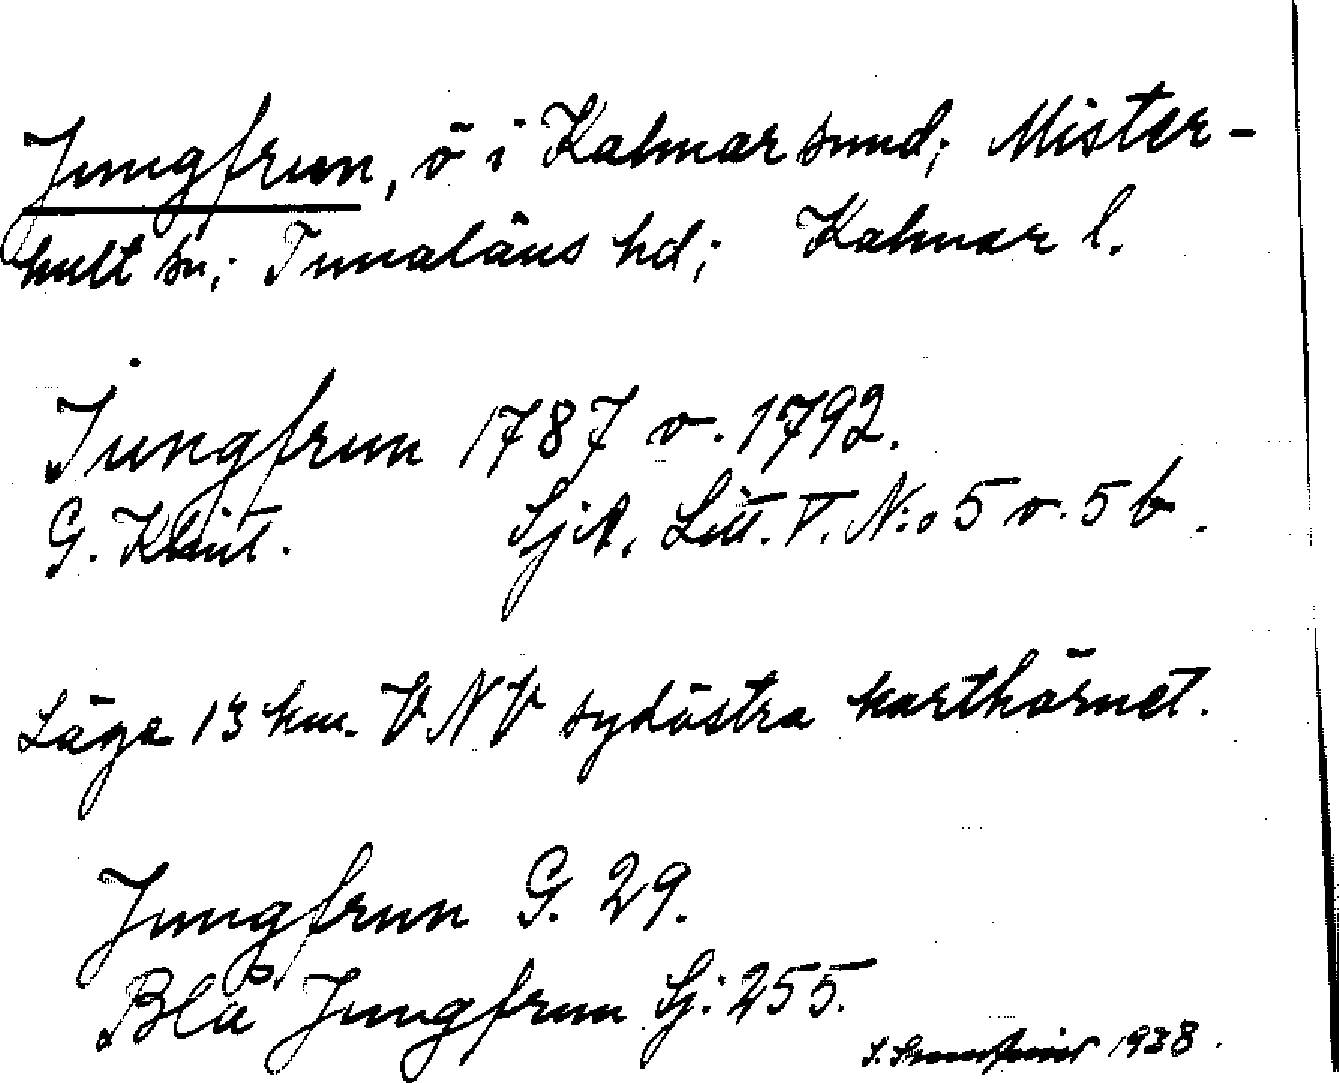 Jungfrun, ö i Kalmar sund; Mister-
hult sn; Tunaläns hd; Kalmar l.
Jungfrun 1787 o. 1792.
G. Klint. SjA, Litt. V. N:o 5 o. 5 b.
Läge 13 km. VNV sydöstra karthörnet.
Jungfrun G. 29.
Blå Jungfrun Sj: 255.
1938.